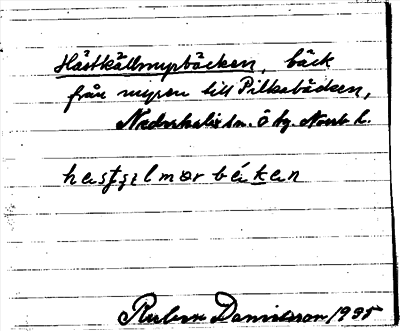 Hästkällmyrbäcken, bäck
från myren till Pilkabäcken,
Nederkalix sn. ö hg. Norrb l.
hestjelmorbéken
Ruben Danielsson 1935